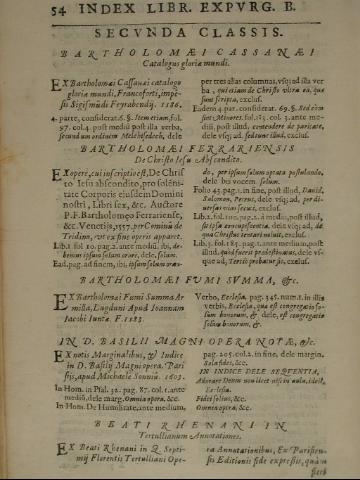 54 INDEX LIBR. EXPVRG. B.
SECVNDA CLASSIS.
BARTHOLOMÆI CASSANÆI
Catalogus gloriæ mundi.
EX Bartholomæi Cassanæi catalogo
gloriæ mundi, Francoforti, impes-
sis Sigismūdi Feyrabendij. 1586.
4. parte, considerat. 6. §. Item etiam, fol.
97. col. 4. post mediū post illa verba,
secundum ordinem Melchisedech, dele
per tres alias columnas, vsq; ad illa ver
ba, qui etiam de Christo vltra ea, quæ
sunt scripta, exclus.
Eadem 4. par. considerat. 69. §. Sed etiam
sunt Minores, fol. 183. col. 3. ante me-
diū, post illud, contendere de paritate,
dele vsq; ad, sed tunc illud, exclus.
BARTHOLOMÆI FERRARIENSIS
De Christo Iesu Abscondito.
EX opere, cui inscriptio est, De Chris
to Iesu abscondito, pro solēni-
tate Corporis eiusdem Domini
nostri, Libri sex, &c. Auctore
P. F. Bartholomęo Ferrariense,
&c. Venetijs, 1557. pro Comiuū de
Tridino, vt ex fine operis apparet.
Lib. 1. fol. 10. pag. 2. ante mediū. ibi, de-
bemus ipsum solum orare, dele, solum.
Ead. pag. ad finem, ibi, ipsum solum oran-
do, per ipsum solum optata postulando,
dele bis vocem solum.
Folio 43. pag. 1. in fine, post illud, David,
Salomon, Petrus, dele vsq; ad, per di-
uersas eius vices, exclus.
Lib. 2. fol. 100. pag. 2. à medio, post illud,
se ipsa accusposueras, dele vsq; ad,
qua Christus tentari voluit, exclus.
Lib. 3. fol. 183. pag. 1. ante medium, post
illud, quod fuerit prædestinatus, dele vs-
que ad, Tertio probatur sic, exclus.
BARTHOLOMÆI FUMI SVMMA, &c.
EX Bartholomæi Fumi Summa Ar
milla, Lugduni Apud Ioannam
Iacobi Iuntæ. F. 1583.
Verbo, Ecclesia, pag. 345. num. 1. in illis
verbis, Ecclesia, qua est congregatio fi-
lium bonorum, &, dele, est congregatio
solum bonorum, &,
IN D. BASILII MAGNI OPERA NOTÆ, &c.
EX notis Marginalibus, & Indice
in D. Basilij Magni opera. Pari
sijs, apud Michaelē Sonniū. 1603.
In Hom. in Psal. 32. pag. 87. col. 1. ante
mediū, dele marg. Omnia opera, &c.
In Hom. De Humilitate, ante medium,
pag. 205. col. 2. in fine, dele margin.
Sola fides, &c.
IN INDICE DELE SEQVENTIA,
Adorare Deum non licet nisi in aula, idest,
Ecclesia.
Fides solius, &c.
Omnia opera, &c.
BEATI RHENANI IN
Tertullianum Annotationes.
EX Beati Rhenani in Q. Septi-
mij Florentis Tertulliani Ope-
ra Annotationibus, Ex Parisien-
sis Editionis side expressis, quæ